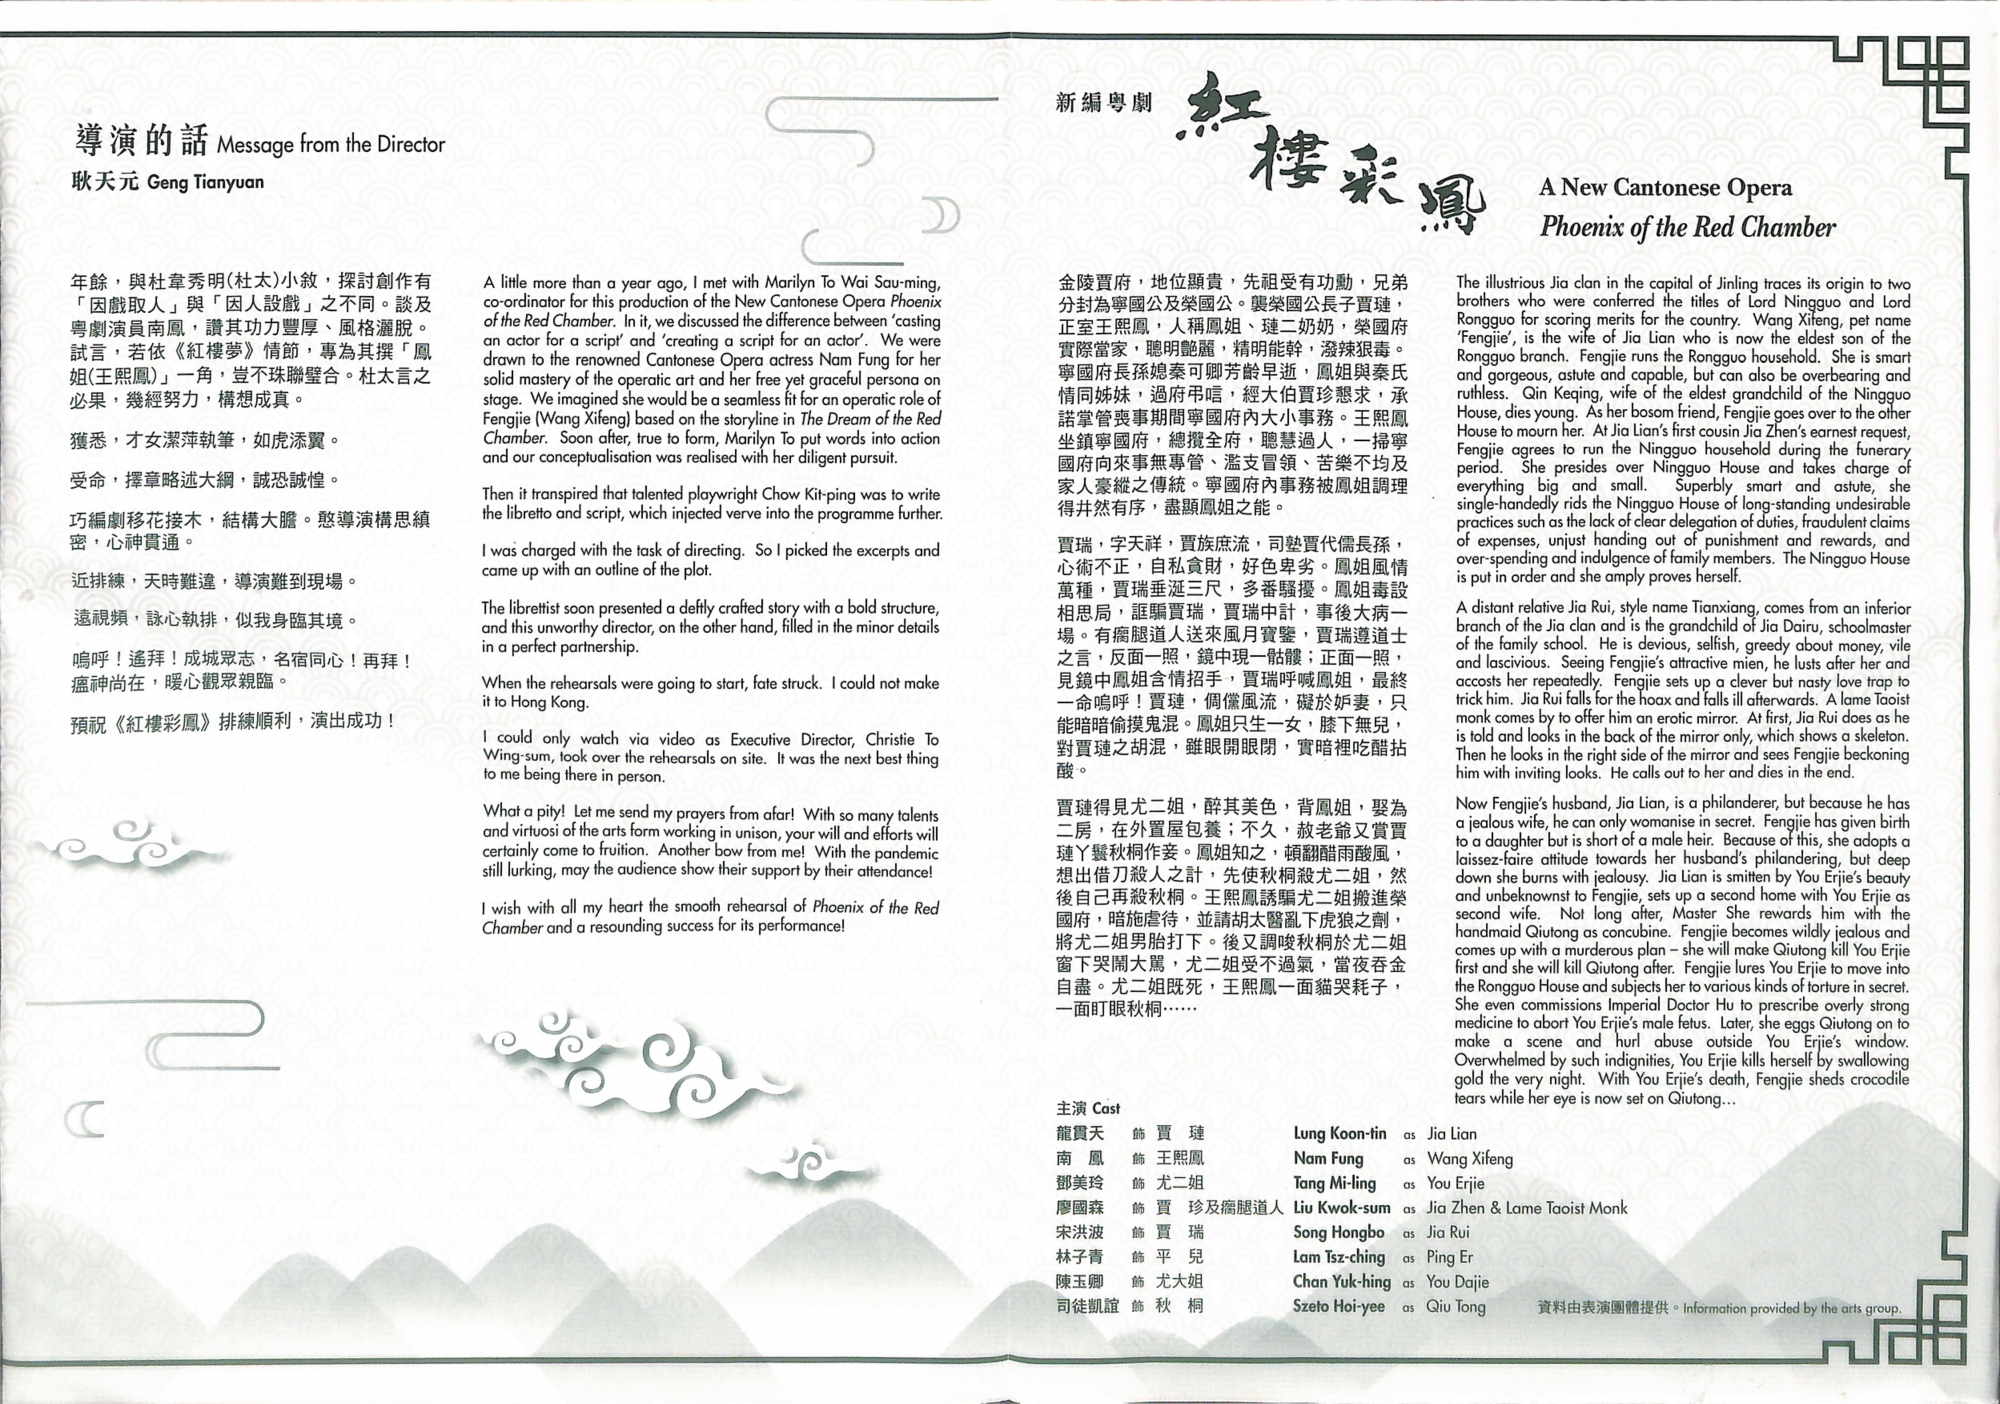 導演的話 Message from the Director
耿天元 Geng Tianyuan
年餘，與杜韋秀明(杜太)小敘，探討創作有
「因戲取人」與「因人設戲」之不同。談及
粵劇演員南鳳，讚其功力豐厚、風格灑脫。
試言，若依《紅樓夢》情節，專為其撰「鳳
姐(王熙鳳)」一角，豈不珠聯璧合。杜太言之
必果，幾經努力，構想成真。
獲悉，才女潔萍執筆，如虎添翼。
受命，擇章略述大綱，誠恐誠惶。
巧編劇移花接木，結構大膽。憨導演構思縝
密，心神貫通。
近排練，天時難違，導演難到現場。
遠視頻，詠心執排，似我身臨其境。
嗚呼！遙拜！成城眾志，名宿同心！再拜！
瘟神尚在，暖心觀眾親臨。
預祝《紅樓彩鳳》排練順利，演出成功！
A little more than a year ago, I met with Marilyn To Wai Sau-ming,
co-ordinator for this production of the New Cantonese Opera Phoenix
of the Red Chamber. In it, we discussed the difference between ‘casting
an actor for a script’ and ‘creating a script for an actor’. We were
drawn to the renowned Cantonese Opera actress Nam Fung for her
solid mastery of the operatic art and her free yet graceful persona on
stage. We imagined she would be a seamless fit for an operatic role of
Fengjie (Wang Xifeng) based on the storyline in The Dream of the Red
Chamber. Soon after, true to form, Marilyn To put words into action
and our conceptualisation was realised with her diligent pursuit.
Then it transpired that talented playwright Chow Kit-ping was to write
the libretto and script, which injected verve into the programme further.
I was charged with the task of directing. So I picked the excerpts and
came up with an outline of the plot.
The librettist soon presented a deftly crafted story with a bold structure,
and this unworthy director, on the other hand, filled in the minor details
in a perfect partnership.
When the rehearsals were going to start, fate struck. I could not make
it to Hong Kong.
I could only watch via video as Executive Director, Christie To
Wing-sum, took over the rehearsals on site. It was the next best thing
to me being there in person.
What a pity! Let me send my prayers from afar! With so many talents
and virtuosi of the arts form working in unison, your will and efforts will
certainly come to fruition. Another bow from me! With the pandemic
still lurking, may the audience show their support by their attendance!
I wish with all my heart the smooth rehearsal of Phoenix of the Red
Chamber and a resounding success for its performance!
新編粵劇 紅樓彩鳳
A New Cantonese Opera
Phoenix of the Red Chamber
金陵賈府，地位顯貴，先祖受有功勳，兄弟
分封為寧國公及榮國公。襲榮國公長子賈璉，
正室王熙鳳，人稱鳳姐、璉二奶奶，榮國府
實際當家，聰明艷麗，精明能幹，潑辣狠毒。
寧國府長孫媳秦可卿芳齡早逝，鳳姐與秦氏
情同姊妹，過府弔唁，經大伯賈珍懇求，承
諾掌管喪事期間寧國府內大小事務。王熙鳳
坐鎮寧國府，總攬全府，聰慧過人，一掃寧
國府向來事無專管、濫支冒領、苦樂不均及
家人豪縱之傳統。寧國府內事務被鳳姐調理
得井然有序，盡顯鳳姐之能。
賈瑞，字天祥，賈族庶流，司塾賈代儒長孫，
心術不正，自私貪財，好色卑劣。鳳姐風情
萬種，賈瑞垂涎三尺，多番騷擾。鳳姐毒設
相思局，誆騙賈瑞，賈瑞中計，事後大病一
場。有瘸腿道人送來風月寶鑒，賈瑞遵道士
之言，反面一照，鏡中現一骷髏；正面一照，
見鏡中鳳姐含情招手，賈瑞呼喊鳳姐，最終
一命嗚呼！賈璉，倜儻風流，礙於妒妻，只
能暗暗偷摸鬼混。鳳姐只生一女，膝下無兒，
對賈璉之胡混，雖眼開眼閉，實暗裡吃醋拈
酸。
賈璉得見尤二姐，醉其美色，背鳳姐，娶為
二房，在外置屋包養；不久，赦老爺又賞賈
璉丫鬟秋桐作妾。鳳姐知之，頓翻醋雨酸風，
想出借刀殺人之計，先使秋桐殺尤二姐，然
後自己再殺秋桐。王熙鳳誘騙尤二姐搬進榮
國府，暗施虐待，並請胡太醫亂下虎狼之劑，
將尤二姐男胎打下。後又調唆秋桐於尤二姐
窗下哭鬧大罵，尤二姐受不過氣，當夜吞金
自盡。尤二姐既死，王熙鳳一面貓哭耗子，
一面盯眼秋桐……
The illustrious Jia clan in the capital of Jinling traces its origin to two
brothers who were conferred the titles of Lord Ningguo and Lord
Rongguo for scoring merits for the country. Wang Xifeng, pet name
‘Fengjie’, is the wife of Jia Lian who is now the eldest son of the
Rongguo branch. Fengjie runs the Rongguo household. She is smart
and gorgeous, astute and capable, but can also be overbearing and
ruthless. Qin Keqing, wife of the eldest grandchild of the Ningguo
House, dies young. As her bosom friend, Fengjie goes over to the other
House to mourn her. At Jia Lian’s first cousin Jia Zhen’s earnest request,
Fengjie agrees to run the Ningguo household during the funerary
period. She presides over Ningguo House and takes charge of
everything big and small. Superbly smart and astute, she
single-handedly rids the Ningguo House of long-standing undesirable
practices such as the lack of clear delegation of duties, fraudulent claims
of expenses, unjust handing out of punishment and rewards, and
over-spending and indulgence of family members. The Ningguo House
is put in order and she amply proves herself.
A distant relative Jia Rui, style name Tianxiang, comes from an inferior
branch of the Jia clan and is the grandchild of Jia Dairu, schoolmaster
of the family school. He is devious, selfish, greedy about money, vile
and lascivious. Seeing Fengjie’s attractive mien, he lusts after her and
accosts her repeatedly. Fengjie sets up a clever but nasty love trap to
trick him. Jia Rui falls for the hoax and falls ill afterwards. A lame Taoist
monk comes by to offer him an erotic mirror. At first, Jia Rui does as he
is told and looks in the back of the mirror only, which shows a skeleton.
Then he looks in the right side of the mirror and sees Fengjie beckoning
him with inviting looks. He calls out to her and dies in the end.
Now Fengjie’s husband, Jia Lian, is a philanderer, but because he has
a jealous wife, he can only womanise in secret. Fengjie has given birth
to a daughter but is short of a male heir. Because of this, she adopts a
laissez-faire attitude towards her husband’s philandering, but deep
down she burns with jealousy. Jia Lian is smitten by You Erjie’s beauty
and unbeknownst to Fengjie, sets up a second home with You Erjie as
second wife. Not long after, Master She rewards him with the
handmaid Qiutong as concubine. Fengjie becomes wildly jealous and
comes up with a murderous plan – she will make Qiutong kill You Erjie
first and she will kill Qiutong after. Fengjie lures You Erjie to move into
the Rongguo House and subjects her to various kinds of torture in secret.
She even commissions Imperial Doctor Hu to prescribe overly strong
medicine to abort You Erjie’s male fetus. Later, she eggs Qiutong on to
make a scene and hurl abuse outside You Erjie’s window.
Overwhelmed by such indignities, You Erjie kills herself by swallowing
gold the very night. With You Erjie’s death, Fengjie sheds crocodile
tears while her eye is now set on Qiutong...
主演 Cast
龍貫天 飾 賈 璉 Lung Koon-tin as Jia Lian
南 鳳 飾 王熙鳳 Nam Fung as Wang Xifeng
鄧美玲 飾 尤二姐 Tang Mi-ling as You Erjie
廖國森 飾 賈 珍及瘸腿道人 Liu Kwok-sum as Jia Zhen & Lame Taoist Monk
宋洪波 飾 賈 瑞 Song Hongbo as Jia Rui
林子青 飾 平 兒 Lam Tsz-ching as Ping Er
陳玉卿 飾 尤大姐 Chan Yuk-hing as You Dajie
司徒凱誼 飾 秋 桐 Szeto Hoi-yee as Qiu Tong
資料由表演團體提供。Information provided by the arts group.